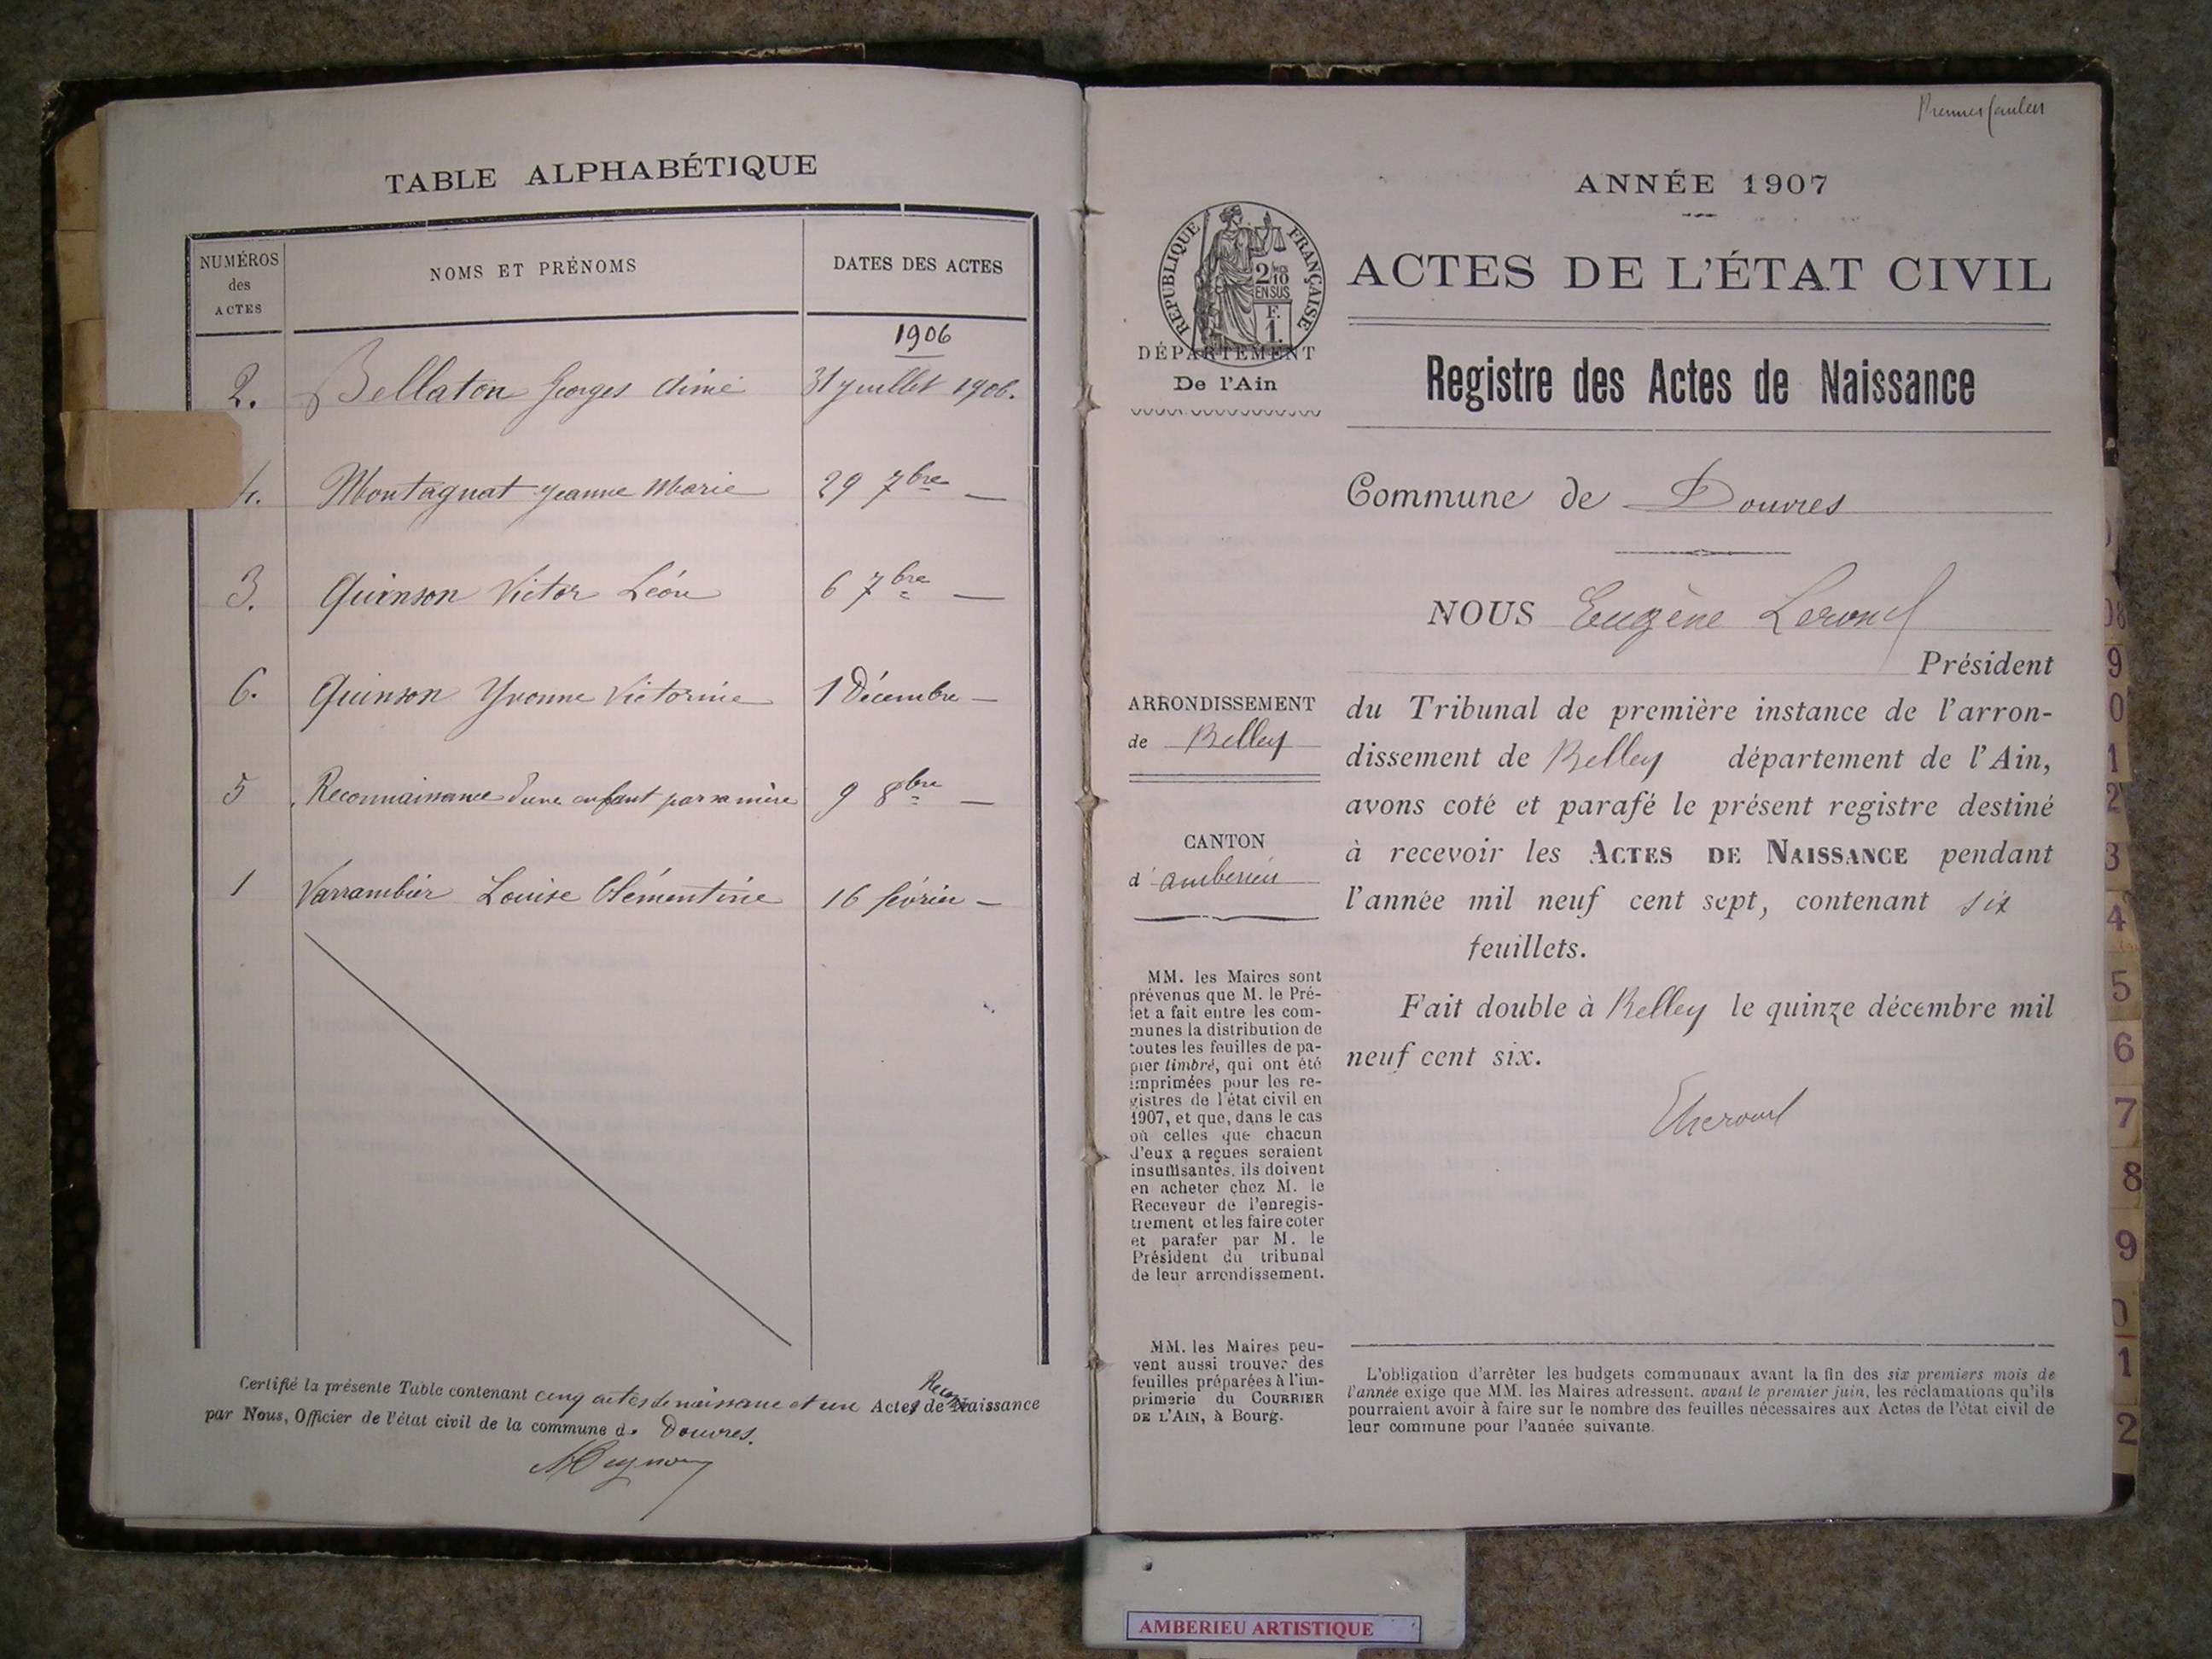 TABLE ALPHABÉTIQUE
NUMÉROS des ACTES
NOMS ET PRÉNOMS
DATES DES ACTES
1906
2. Bellaton Georges Aimé 31 juillet 1906.
4. Montagnat Jeanne Marie 29 7bre —
3. Quinson Victor Léon 6 7bre —
6. Quinson Yvonne Victorine 1 Décembre —
5 Reconnaissance d'une enfant par sa mère 9 8bre —
1 Varrambier Louise Clémentine 16 février —
Certifié la présente Table contenant cinq actes de naissance et un Actes de Naissance
par Nous, Officier de l'état civil de la commune de Douvres.
Premier
ANNÉE 1907
RÉPUBLIQUE FRANÇAISE
2/10
EN SUS
F.
1.
DÉPARTEMENT
De l'Ain
ACTES DE L'ÉTAT CIVIL
Registre des Actes de Naissance
Commune de Douvres
NOUS Eugène
Président
ARRONDISSEMENT
de Belley
CANTON
d'Ambérieu
du Tribunal de première instance de l'arron-
dissement de Belley département de l'Ain,
avons coté et parafé le présent registre destiné
à recevoir les ACTES DE NAISSANCE pendant
l'année mil neuf cent sept, contenant six
feuillets.
Fait double à Belley le quinze décembre mil
neuf cent six.
MM. les Maires sont
prévenus que M. le Pré-
fet a fait entre les com-
munes la distribution de
toutes les feuilles de pa-
pier timbré, qui ont été
imprimées pour les re-
gistres de l'état civil en
1907, et que, dans le cas
où celles que chacun
d'eux a reçues seraient
insuffisantes, ils doivent
en acheter chez M. le
Receveur de l'enregis-
trement et les faire coter
et parafer par M. le
Président du tribunal
de leur arrondissement.
MM. les Maires peu-
vent aussi trouver des
feuilles préparées à l'im-
primerie du COURRIER
DE L'AIN, à Bourg.
L'obligation d'arrêter les budgets communaux avant la fin des six premiers mois de
l'année exige que MM. les Maires adressent, avant le premier juin, les réclamations qu'ils
pourraient avoir à faire sur le nombre des feuilles nécessaires aux Actes de l'état civil de
leur commune pour l'année suivante.
9
0
1
2
3
4
5
6
7
8
9
0
1
2
AMBERIEU ARTISTIQUE